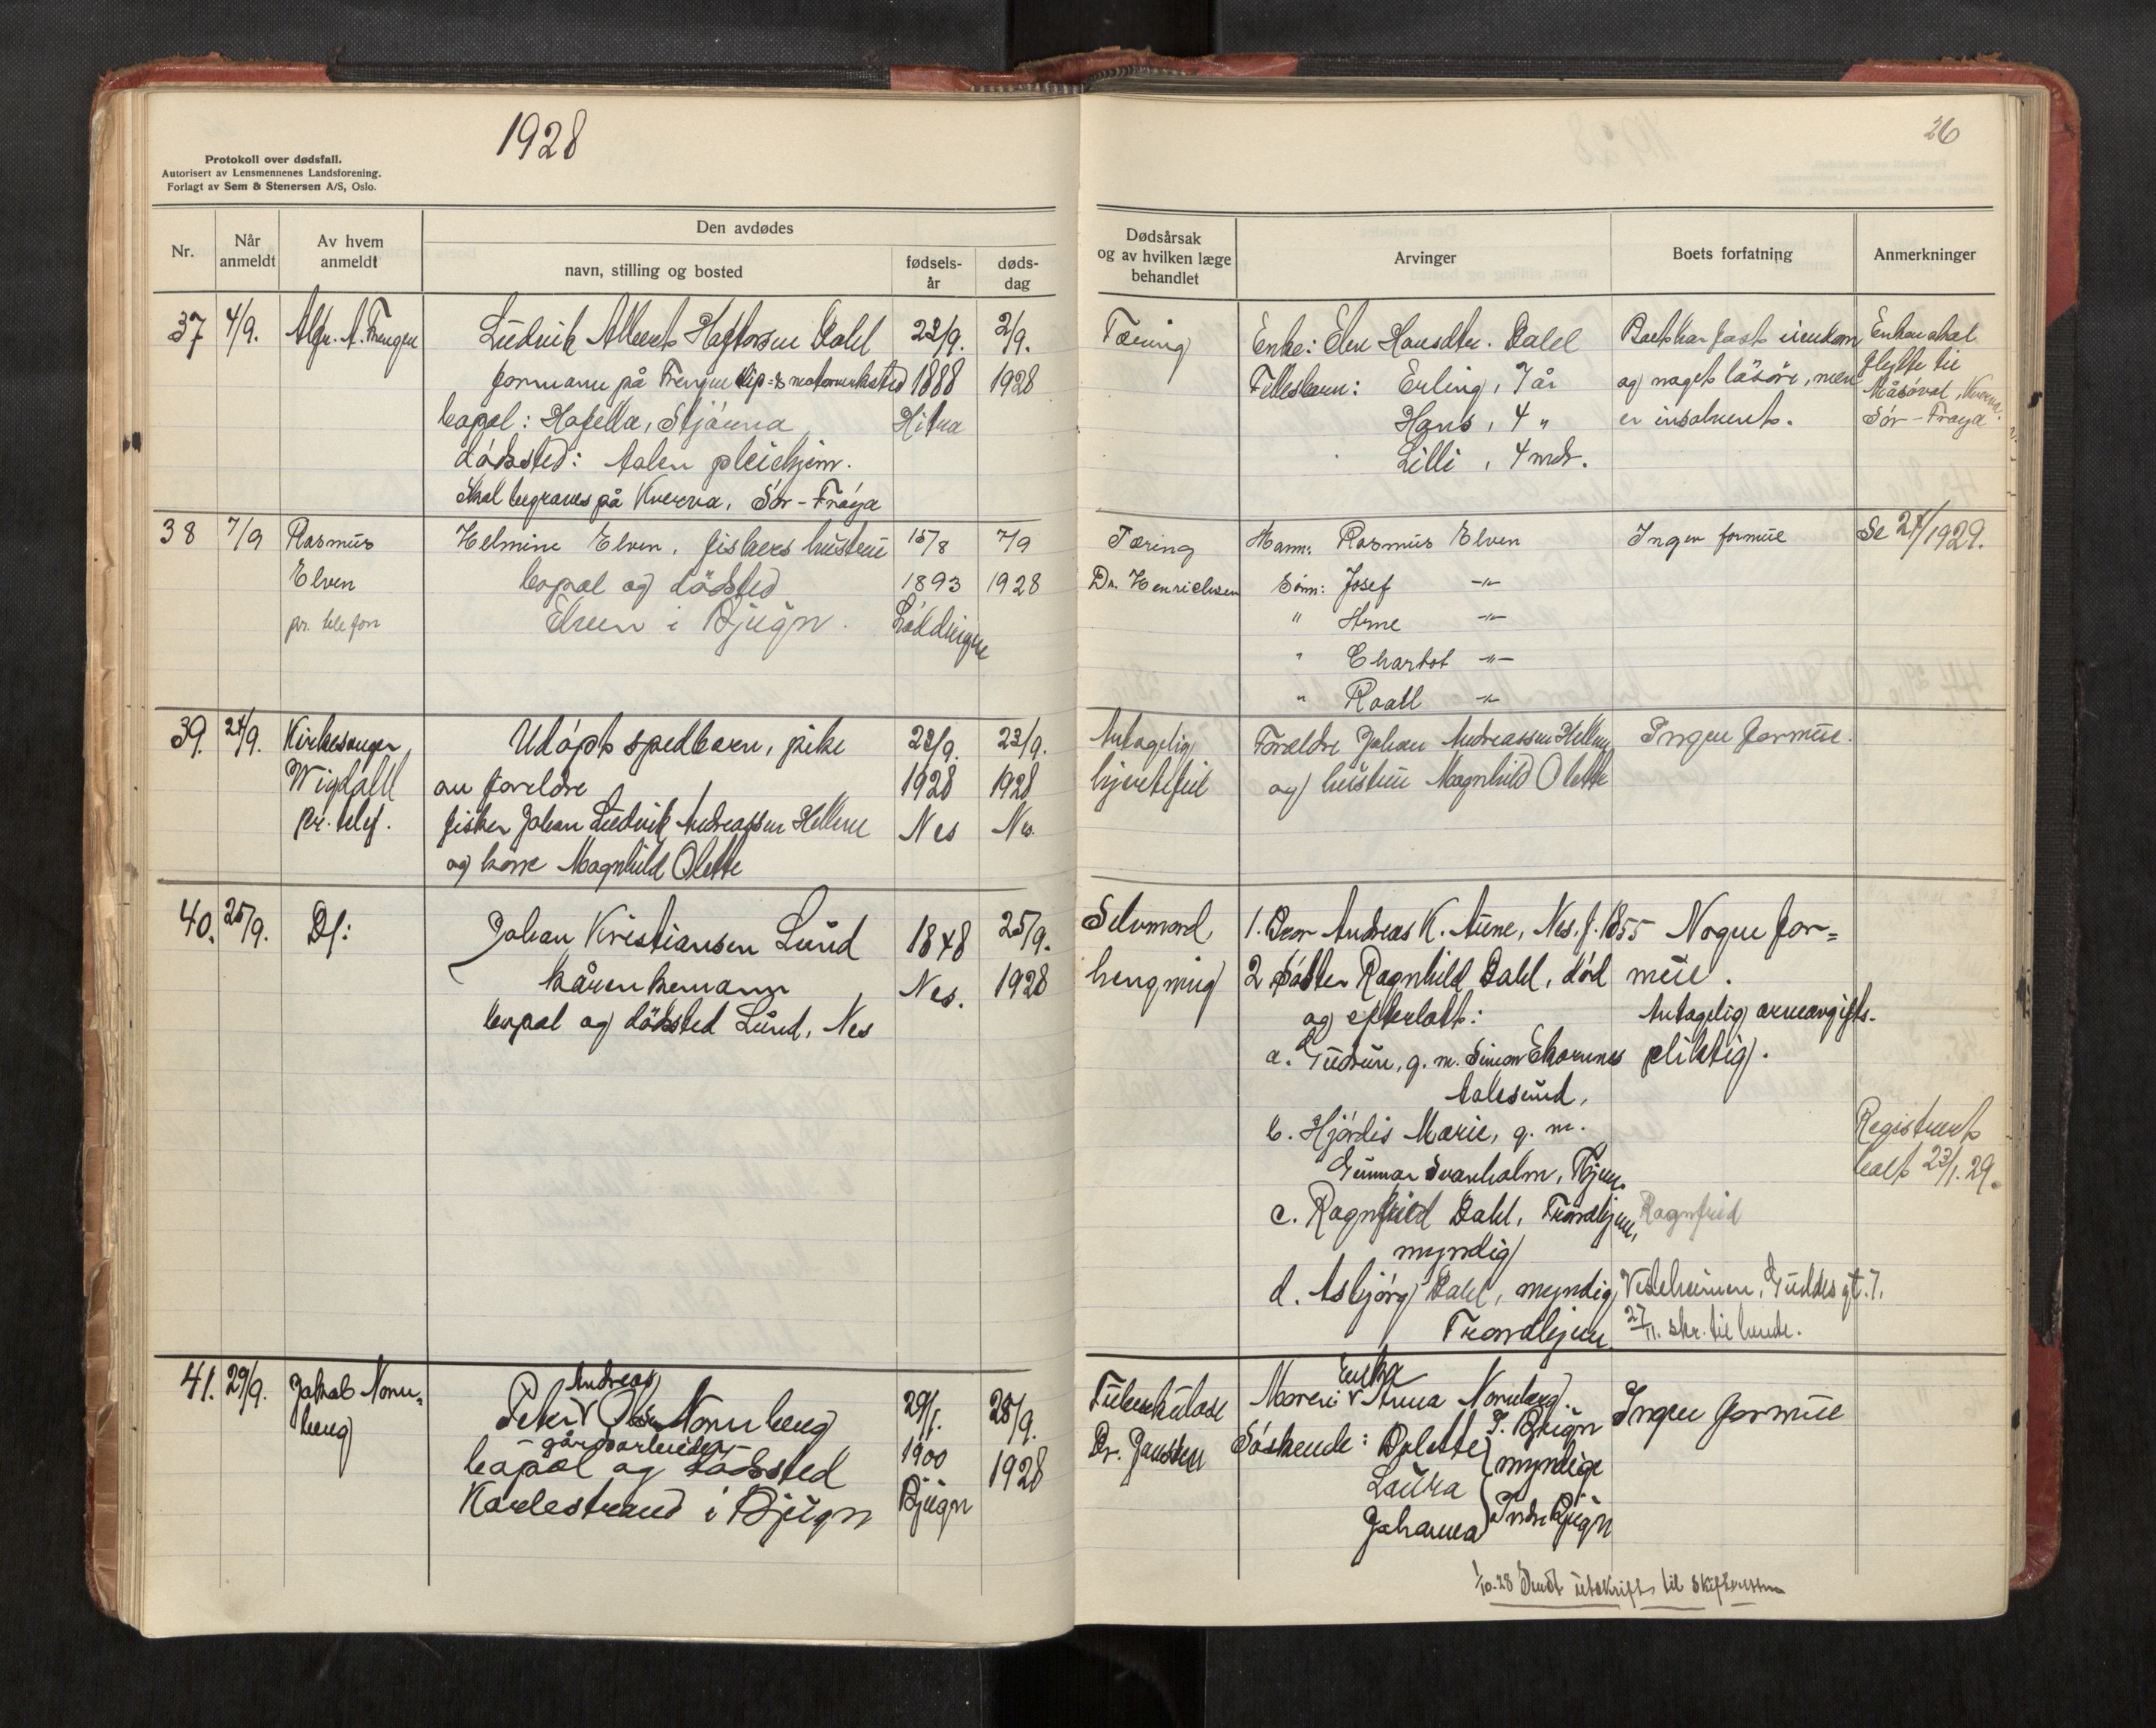 1928
Protokoll over dødsfall.
Autorisert av Lensmennenes Landsforening.
Forlagt av Sem & Stenersen A/S, Oslo.
Nr.
Når anmeldt
Av hvem anmeldt
Den avdødes
navn, stilling og bosted
fødsels-år
døds-dag
37 4/9. Alfr. A. Frengen Ludvik Albert Haftorsen Dahl 22/9. 2/9.
formann på Frengen slip- & motorverksted 1888 1928
bopæl: Hafella, Stjørna Hitra
dødssted: Aalen pleiehjem.
Skal begraves på Kverva, Sør-Frøya
38 7/9 Rasmus Helmine Elven, fiskers hustru 15/8 7/9
Elven bopæl og dødsted 1893 1928
pr. telefon Elven i Bjugn. Løddingen
39. 24/9. Kirkesanger Udøpt spedbarn, pike 22/9. 23/9.
Wigdahl av foreldre 1928 1928
pr. telef. fisker Johan Ludvik Andreassen Hellem Nes Nes
og kone Magnhild Olette
40. 25/9. Ds: Johan Kristiansen Lund 1848 25/9.
kårenkemann Nes. 1928
bopæl og dødssted Lund, Nes
41. 29/9. Jakob Nonsberg Peter Andreas Olsen Nonsberg 29/1. 28/9.
- gårdsarbeider - 1900 1928
bopæl og dødssted
Karlestrand i Bjugn Bjugn
26
Dødsårsak og av hvilken læge behandlet
Arvinger
Boets forfatning
Anmerkninger
Tæring Enke: Elen Hansdtr. Dahl Boet har fast eiendom Enken skal
Fellesbarn: Erling, 7 år og noget løsøre, men flytte til
Hans, 4 " er insolvent. Måsøval, Kverva,
Lilli, 4 mdr. Sør-Frøya
Tæring Mann: Rasmus Elven Ingen formue Se 24/1929.
Dr. Henrichsen Sønn: Josef -"-
" Arne -"-
" Charlot -"-
" Roall -"-
Antagelig Foreldre Johan Andreassen Hellem Ingen formue.
hjertefeil og hustru Magnhild Olette
Selvmord, 1. Bror Andreas K. Aune, Nes. f. 1855 Nogen for=
hengning 2 Søster Ragnhild Dahl, død mue.
og efterlatt: Antagelig arveavgifts-
a. Gudrun, g. m. Simon Ekornnes pliktig.
Aalesund,
b. Hjørdis Marie, g. m. Registrert
Gunnar Svanholm, Thjem. boet 23/1.29.
c. Ragnfrid Dahl, Trondhjem, Ragnfrid
myndig
d. Asbjørg Dahl, myndig, Vesleheimen, Guldbs gt. 7.
Trondhjem 27/11. skr. til hende.
Tuberkulose Moren: Enka Anna Nonsberg. I. Bjugn Ingen formue
Dr. Janssen Søskende: Dolette myndige
Laura
Johanna Indre Bjugn
1/10-28 Sendt utskrift til skifteretten